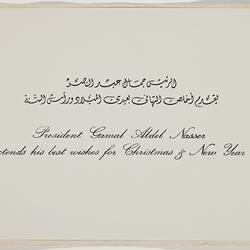 الرئيس جمال عبد الناصر
يقدم أخلص التهانى بعيدى الميلاد ورأس السنة
President Gamal Abdel Nasser
extends his best wishes for Christmas & New Year